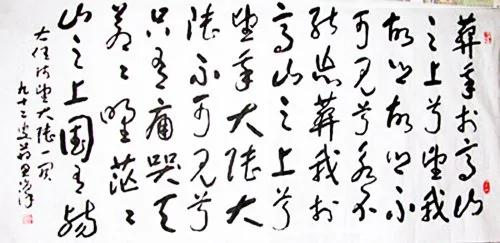 葬我於高山
之上兮望我
故鄉故鄉不
可見兮永不
能忘葬我於
高山之上兮
望我大陸大
陸不可見兮
只有痛哭天
蒼〻野茫〻
山之上國有殤
右任詩望大陸一闋
九十二叟